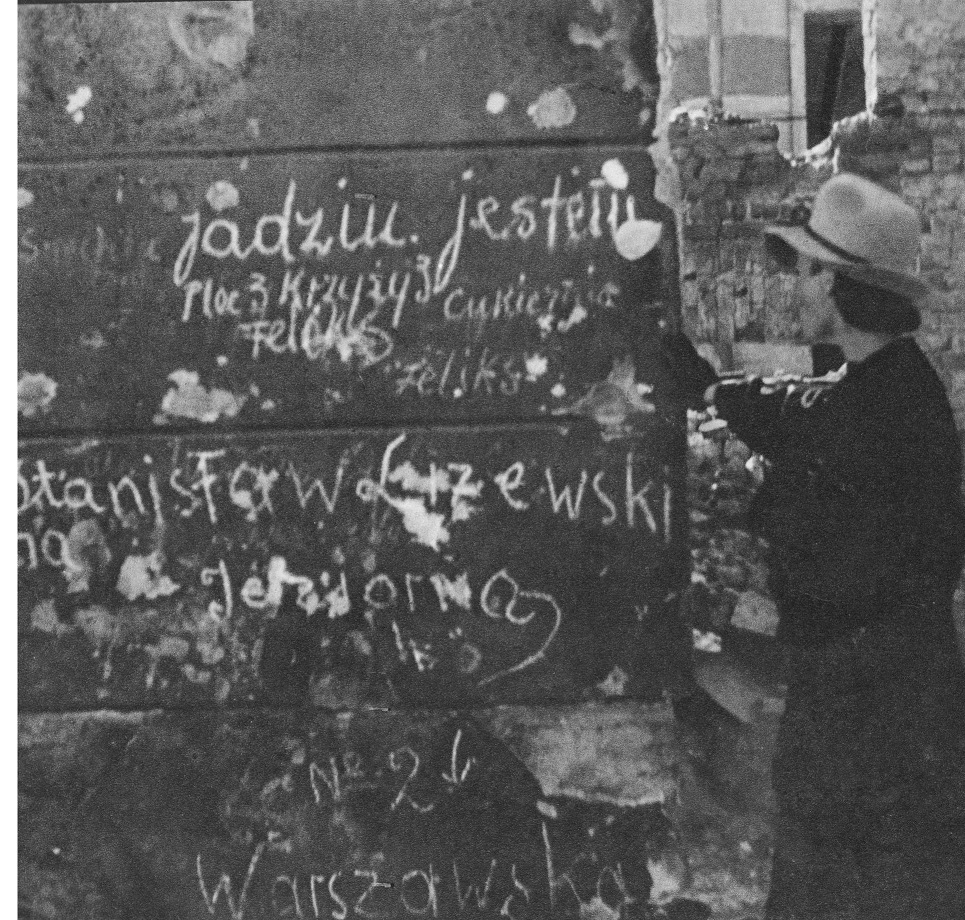 Jadziu. jestem
Ploc 3 Krzyży 3 Cukiernia
Feliks
Feliks
Stanisław
na Jeziorna
No 2
Warszawska